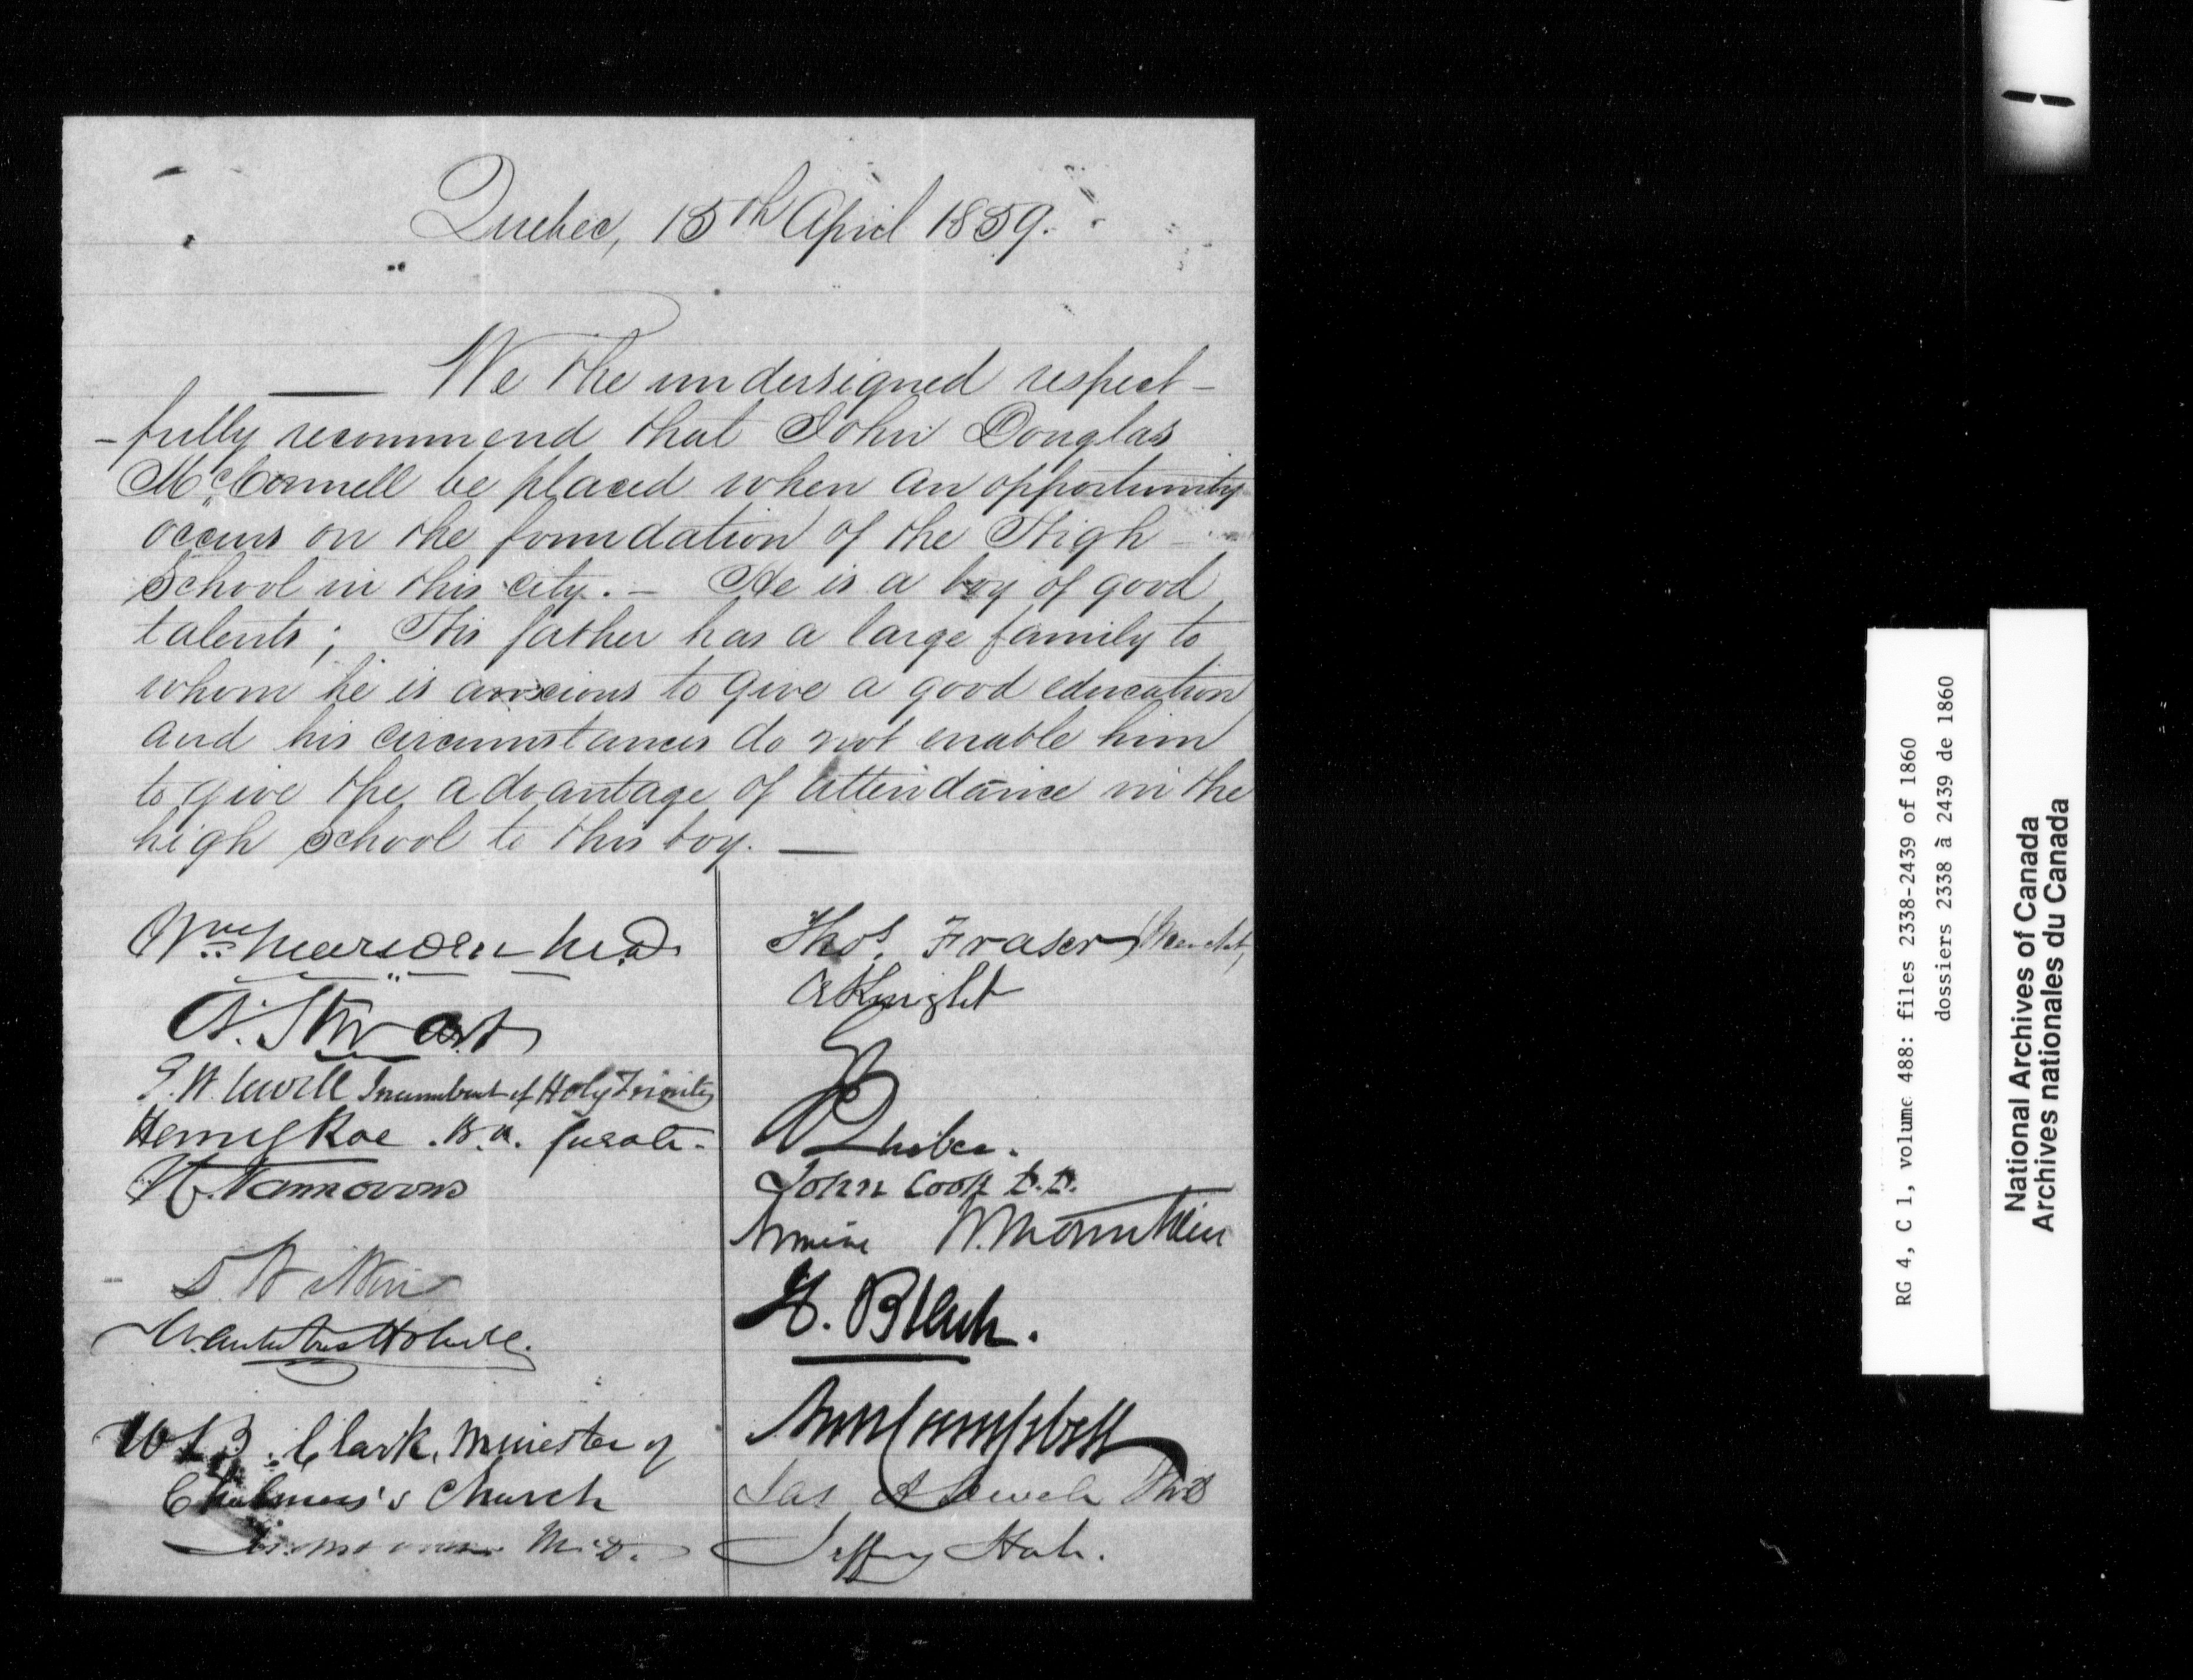 Quebec, 15th April 1859.
We the undersigned respect-
-fully recommend that John Douglas
McConnell be placed when an opportunity
occurs on the foundation of the High-
School in this city. - He is a boy of good
talents; His father has a large family to
whom he is anxious to give a good education
and his circumstances do not enable him
to give the advantage of attendance in the
high school to this boy. —
Wm Marsden M.D.
A. Stuart
E. W. Sewell Incumbent of Holy Trinity
Henry Roe . B.A. Curate.
S. Wilkie
W. B. Clark, Minister of
Chalmers's Church
M.D.
Thos. Fraser
A Knight
Quebec.
John Cook D.D.
Armine W. Mountain
H. Black.
Arch Campbell
Jas A Sewell M.D
Jeffery Hale.
RG 4, C 1, volume 488: files 2338-2439 of 1860
dossiers 2338 à 2439 de 1860
National Archives of Canada
Archives nationales du Canada